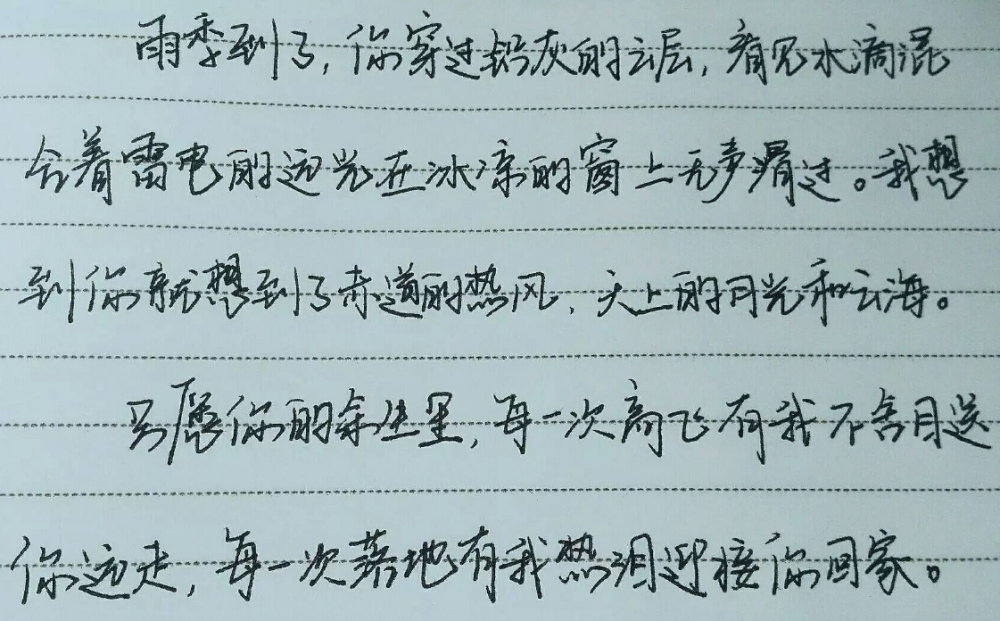 雨季到了,你穿过铅灰的云层,看见水滴混
合着雷电的远光在冰凉的窗上无声滑过。我想
到你就想到了赤道的热风、天上的月光和云海。
只愿你的余生里,每一次高飞有我不舍目送
你远走,每一次落地有我热泪迎接你回家。